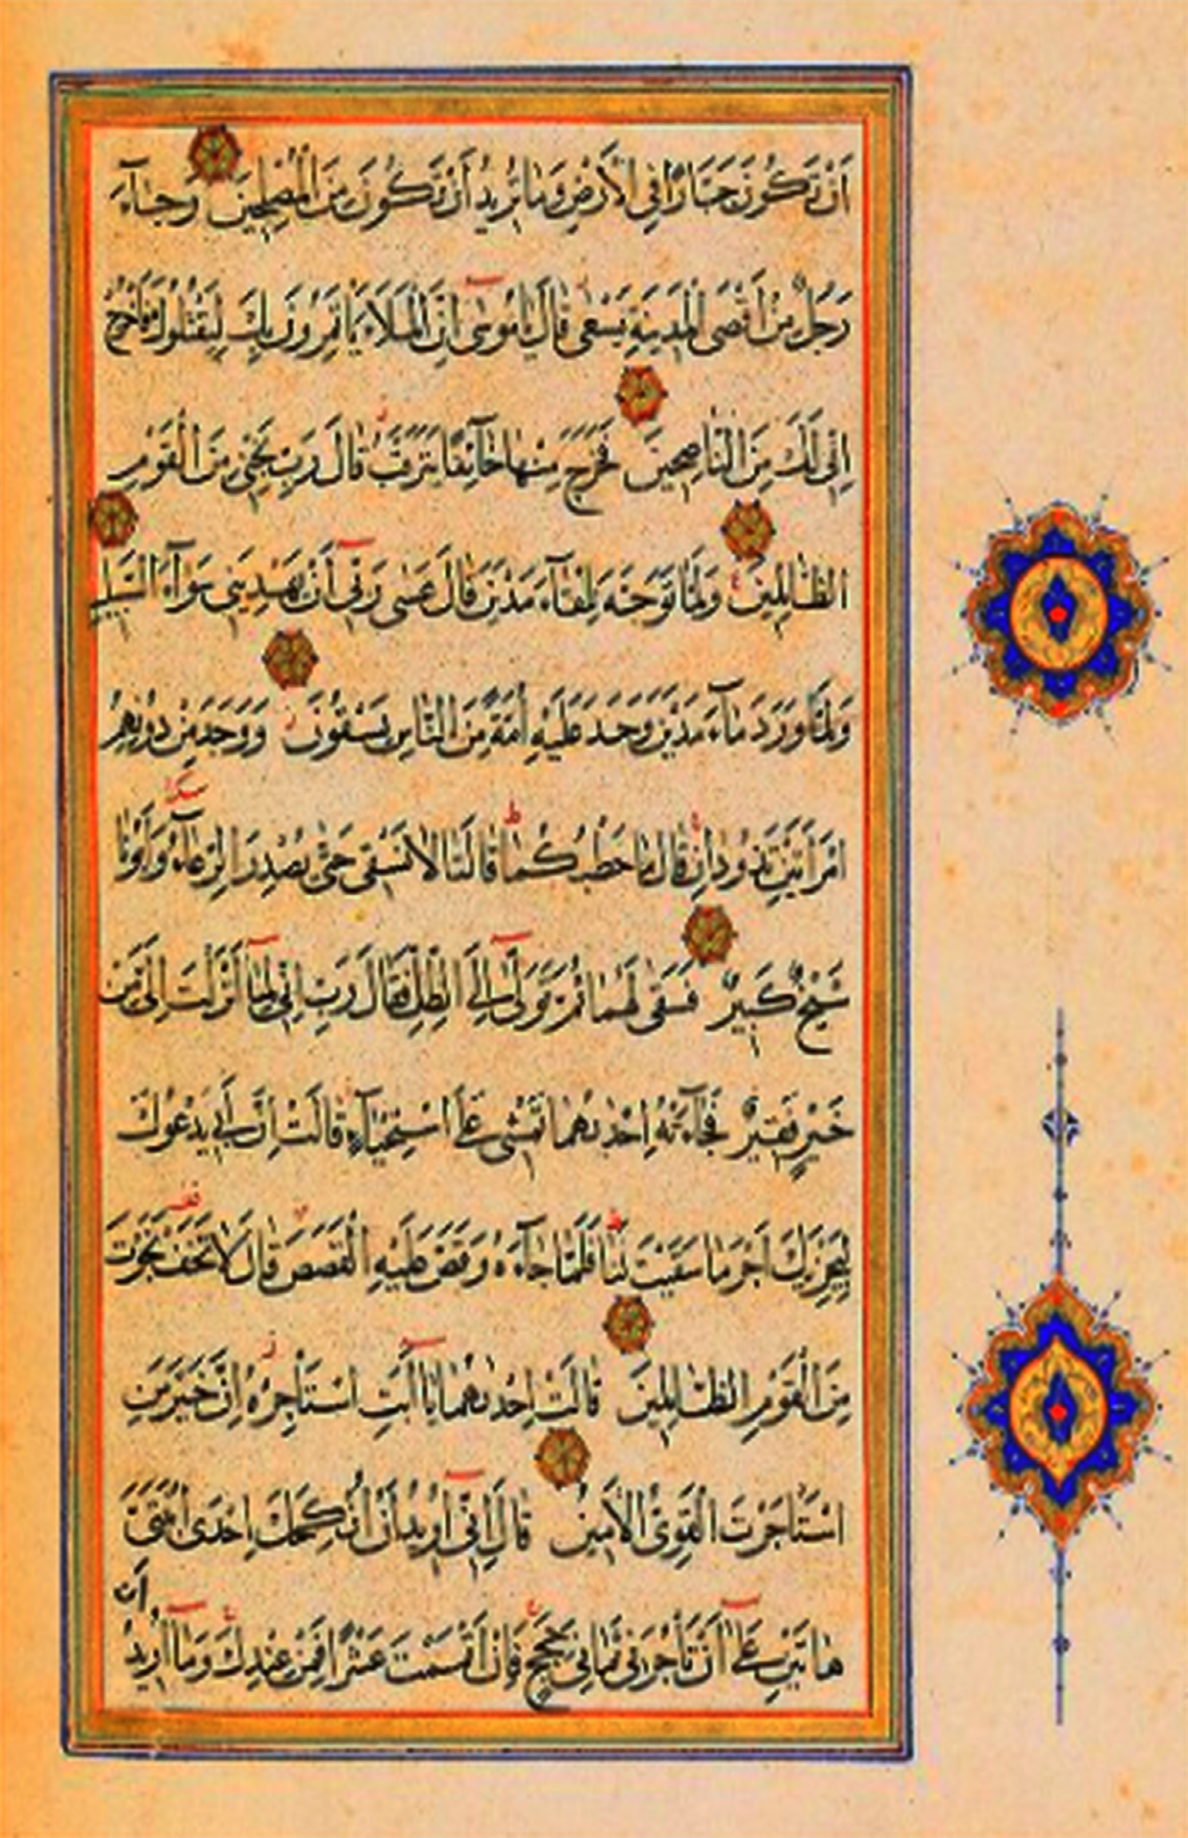 اَنْ تَكُونَ جَبَّارًا فِى الْاَرْضِ وَمَا تُرِيدُ اَنْ تَكُونَ مِنَ الْمُصْلِحِينَ وَجَآءَ
رَجُلٌ مِنْ اَقْصَى الْمَدِينَةِ يَسْعٰى قَالَ يَا مُوسٰٓى اِنَّ الْمَلَاَ يَاْتَمِرُونَ بِكَ لِيَقْتُلُوكَ فَاخْرُجْ
اِنِّى لَكَ مِنَ النَّاصِحِينَ فَخَرَجَ مِنْهَا خَآئِفًا يَتَرَقَّبُ قَالَ رَبِّ نَجِّنِى مِنَ الْقَوْمِ
الظَّالِمِينَ وَلَمَّا تَوَجَّهَ تِلْقَآءَ مَدْيَنَ قَالَ عَسٰى رَبِّٓى اَنْ يَهْدِيَنِى سَوَآءَ السَّبِيلِ
وَلَمَّا وَرَدَ مَآءَ مَدْيَنَ وَجَدَ عَلَيْهِ اُمَّةً مِنَ النَّاسِ يَسْقُونَ وَوَجَدَ مِنْ دُونِهِمُ
امْرَاَتَيْنِ تَذُودَانِ قَالَ مَا خَطْبُكُمَا قَالَتَا لَا نَسْقِى حَتّٰى يُصْدِرَ الرِّعَآءُ وَاَبُونَا
شَيْخٌ كَبِيرٌ فَسَقٰى لَهُمَا ثُمَّ تَوَلّٰٓى اِلَى الظِّلِّ فَقَالَ رَبِّ اِنِّى لِمَآ اَنْزَلْتَ اِلَىَّ مِنْ
خَيْرٍ فَقِيرٌ فَجَآءَتْهُ اِحْدٰيهُمَا تَمْشِى عَلَى اسْتِحْيَآءٍ قَالَتْ اِنَّ اَبِى يَدْعُوكَ
لِيَجْزِيَكَ اَجْرَ مَا سَقَيْتَ لَنَا فَلَمَّا جَآءَهُ وَقَصَّ عَلَيْهِ الْقَصَصَ قَالَ لَا تَخَفْ نَجَوْتَ
مِنَ الْقَوْمِ الظَّالِمِينَ قَالَتْ اِحْدٰيهُمَا يَآ اَبَتِ اسْتَاْجِرْهُ اِنَّ خَيْرَ مَنِ
اسْتَاْجَرْتَ الْقَوِىُّ الْاَمِينُ قَالَ اِنِّٓى اُرِيدُ اَنْ اُنْكِحَكَ اِحْدَى ابْنَتَىَّ
هَاتَيْنِ عَلٰٓى اَنْ تَاْجُرَنِى ثَمَانِىَ حِجَجٍ فَاِنْ اَتْمَمْتَ عَشْرًا فَمِنْ عِنْدِكَ وَمَآ اُرِيدُ
اَنْ